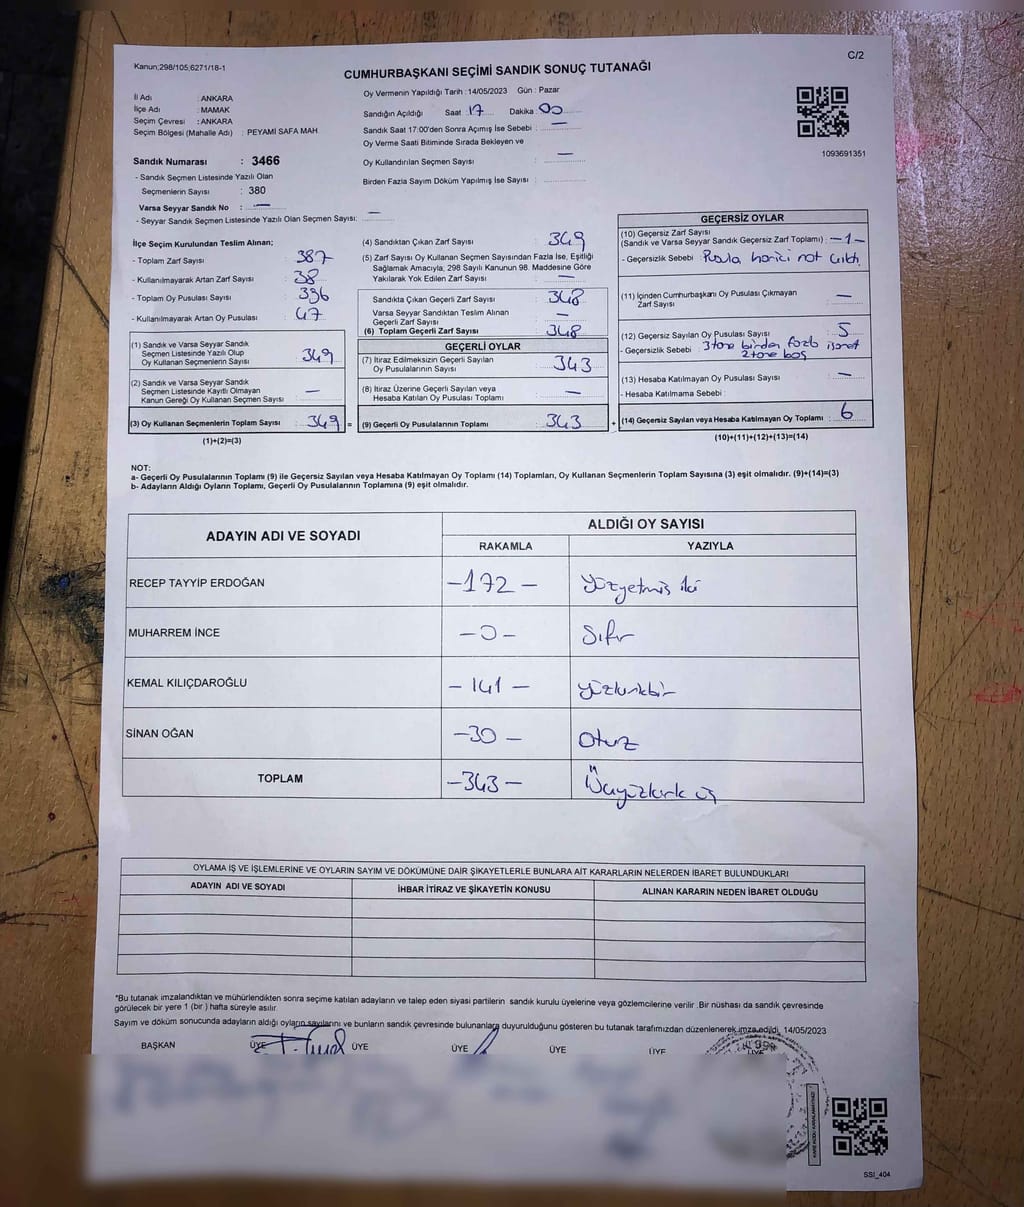 Kanun;298/105;6271/18-1
C/2
CUMHURBAŞKANI SEÇİMİ SANDIK SONUÇ TUTANAĞI
İl Adı : ANKARA
İlçe Adı : MAMAK
Seçim Çevresi : ANKARA
Seçim Bölgesi (Mahalle Adı) : PEYAMİ SAFA MAH.
Sandık Numarası : 3466
- Sandık Seçmen Listesinde Yazılı Olan
Seçmenlerin Sayısı : 380
Varsa Seyyar Sandık No : —
- Seyyar Sandık Seçmen Listesinde Yazılı Olan Seçmen Sayısı: —
Oy Vermenin Yapıldığı Tarih : 14/05/2023 Gün : Pazar
Sandığın Açıldığı Saat : 17 Dakika : 00
Sandık Saat 17:00'den Sonra Açımış İse Sebebi : —
Oy Verme Saati Bitiminde Sırada Bekleyen ve
Oy Kullandırılan Seçmen Sayısı : —
Birden Fazla Sayım Döküm Yapılmış İse Sayısı :
1093691351
İlçe Seçim Kurulundan Teslim Alınan;
- Toplam Zarf Sayısı : 387
- Kullanılmayarak Artan Zarf Sayısı : 38
- Toplam Oy Pusulası Sayısı : 396
- Kullanılmayarak Artan Oy Pusulası : 47
(1) Sandık ve Varsa Seyyar Sandık
Seçmen Listesinde Yazılı Olup
Oy Kullanan Seçmenlerin Sayısı : 349
(2) Sandık ve Varsa Seyyar Sandık
Seçmen Listesinde Kayıtlı Olmayan
Kanun Gereği Oy Kullanan Seçmen Sayısı : —
(3) Oy Kullanan Seçmenlerin Toplam Sayısı : 349 =
(1)+(2)=(3)
(4) Sandıktan Çıkan Zarf Sayısı : 349
(5) Zarf Sayısı Oy Kullanan Seçmen Sayısından Fazla İse, Eşitliği
Sağlamak Amacıyla, 298 Sayılı Kanunun 98. Maddesine Göre
Yakılarak Yok Edilen Zarf Sayısı : —
Sandıkta Çıkan Geçerli Zarf Sayısı : 348
Varsa Seyyar Sandıktan Teslim Alınan
Geçerli Zarf Sayısı : —
(6) Toplam Geçerli Zarf Sayısı : 348
GEÇERLİ OYLAR
(7) İtiraz Edilmeksizin Geçerli Sayılan
Oy Pusulalarının Sayısı : 343
(8) İtiraz Üzerine Geçerli Sayılan veya
Hesaba Katılan Oy Pusulası Toplamı : —
(9) Geçerli Oy Pusulalarının Toplamı : 343 +
GEÇERSİZ OYLAR
(10) Geçersiz Zarf Sayısı
(Sandık ve Varsa Seyyar Sandık Geçersiz Zarf Toplamı) : -1-
- Geçersizlik Sebebi : Pusula harici not çıktı.
(11) İçinden Cumhurbaşkanı Oy Pusulası Çıkmayan
Zarf Sayısı : —
(12) Geçersiz Sayılan Oy Pusulası Sayısı : 5
- Geçersizlik Sebebi : 3 tane birden fazla işaret
2 tane boş
(13) Hesaba Katılmayan Oy Pusulası Sayısı : —
- Hesaba Katılmama Sebebi :
(14) Geçersiz Sayılan veya Hesaba Katılmayan Oy Toplamı : 6
(10)+(11)+(12)+(13)=(14)
NOT:
a- Geçerli Oy Pusulalarının Toplamı (9) ile Geçersiz Sayılan veya Hesaba Katılmayan Oy Toplamı (14) Toplamları, Oy Kullanan Seçmenlerin Toplam Sayısına (3) eşit olmalıdır. (9)+(14)=(3)
b- Adayların Aldığı Oyların Toplamı, Geçerli Oy Pusulalarının Toplamına (9) eşit olmalıdır.
ADAYIN ADI VE SOYADI ALDIĞI OY SAYISI
RAKAMLA YAZIYLA
RECEP TAYYİP ERDOĞAN -172- Yüzyetmiş iki
MUHARREM İNCE -0- Sıfır
KEMAL KILIÇDAROĞLU -141- yüzkırkbir
SİNAN OĞAN -30- Otuz
TOPLAM -343- Üçyüzkırk üç
OYLAMA İŞ VE İŞLEMLERİNE VE OYLARIN SAYIM VE DÖKÜMÜNE DAİR ŞİKAYETLERLE BUNLARA AİT KARARLARIN NELERDEN İBARET BULUNDUKLARI
ADAYIN ADI VE SOYADI İHBAR İTİRAZ VE ŞİKAYETİN KONUSU ALINAN KARARIN NEDEN İBARET OLDUĞU
*Bu tutanak imzalandıktan ve mühürlendikten sonra seçime katılan adayların ve talep eden siyasi partilerin sandık kurulu üyelerine veya gözlemcilerine verilir. Bir nüshası da sandık çevresinde
görülecek bir yere 1 (bir) hafta süreyle asılır.
Sayım ve döküm sonucunda adayların aldığı oyların sayılarını ve bunların sandık çevresinde bulunanlara duyurulduğunu gösteren bu tutanak tarafımızdan düzenlenerek imza edildi. 14/05/2023
BAŞKAN ÜYE ÜYE ÜYE ÜYE ÜYE ÜYE
SSI_404